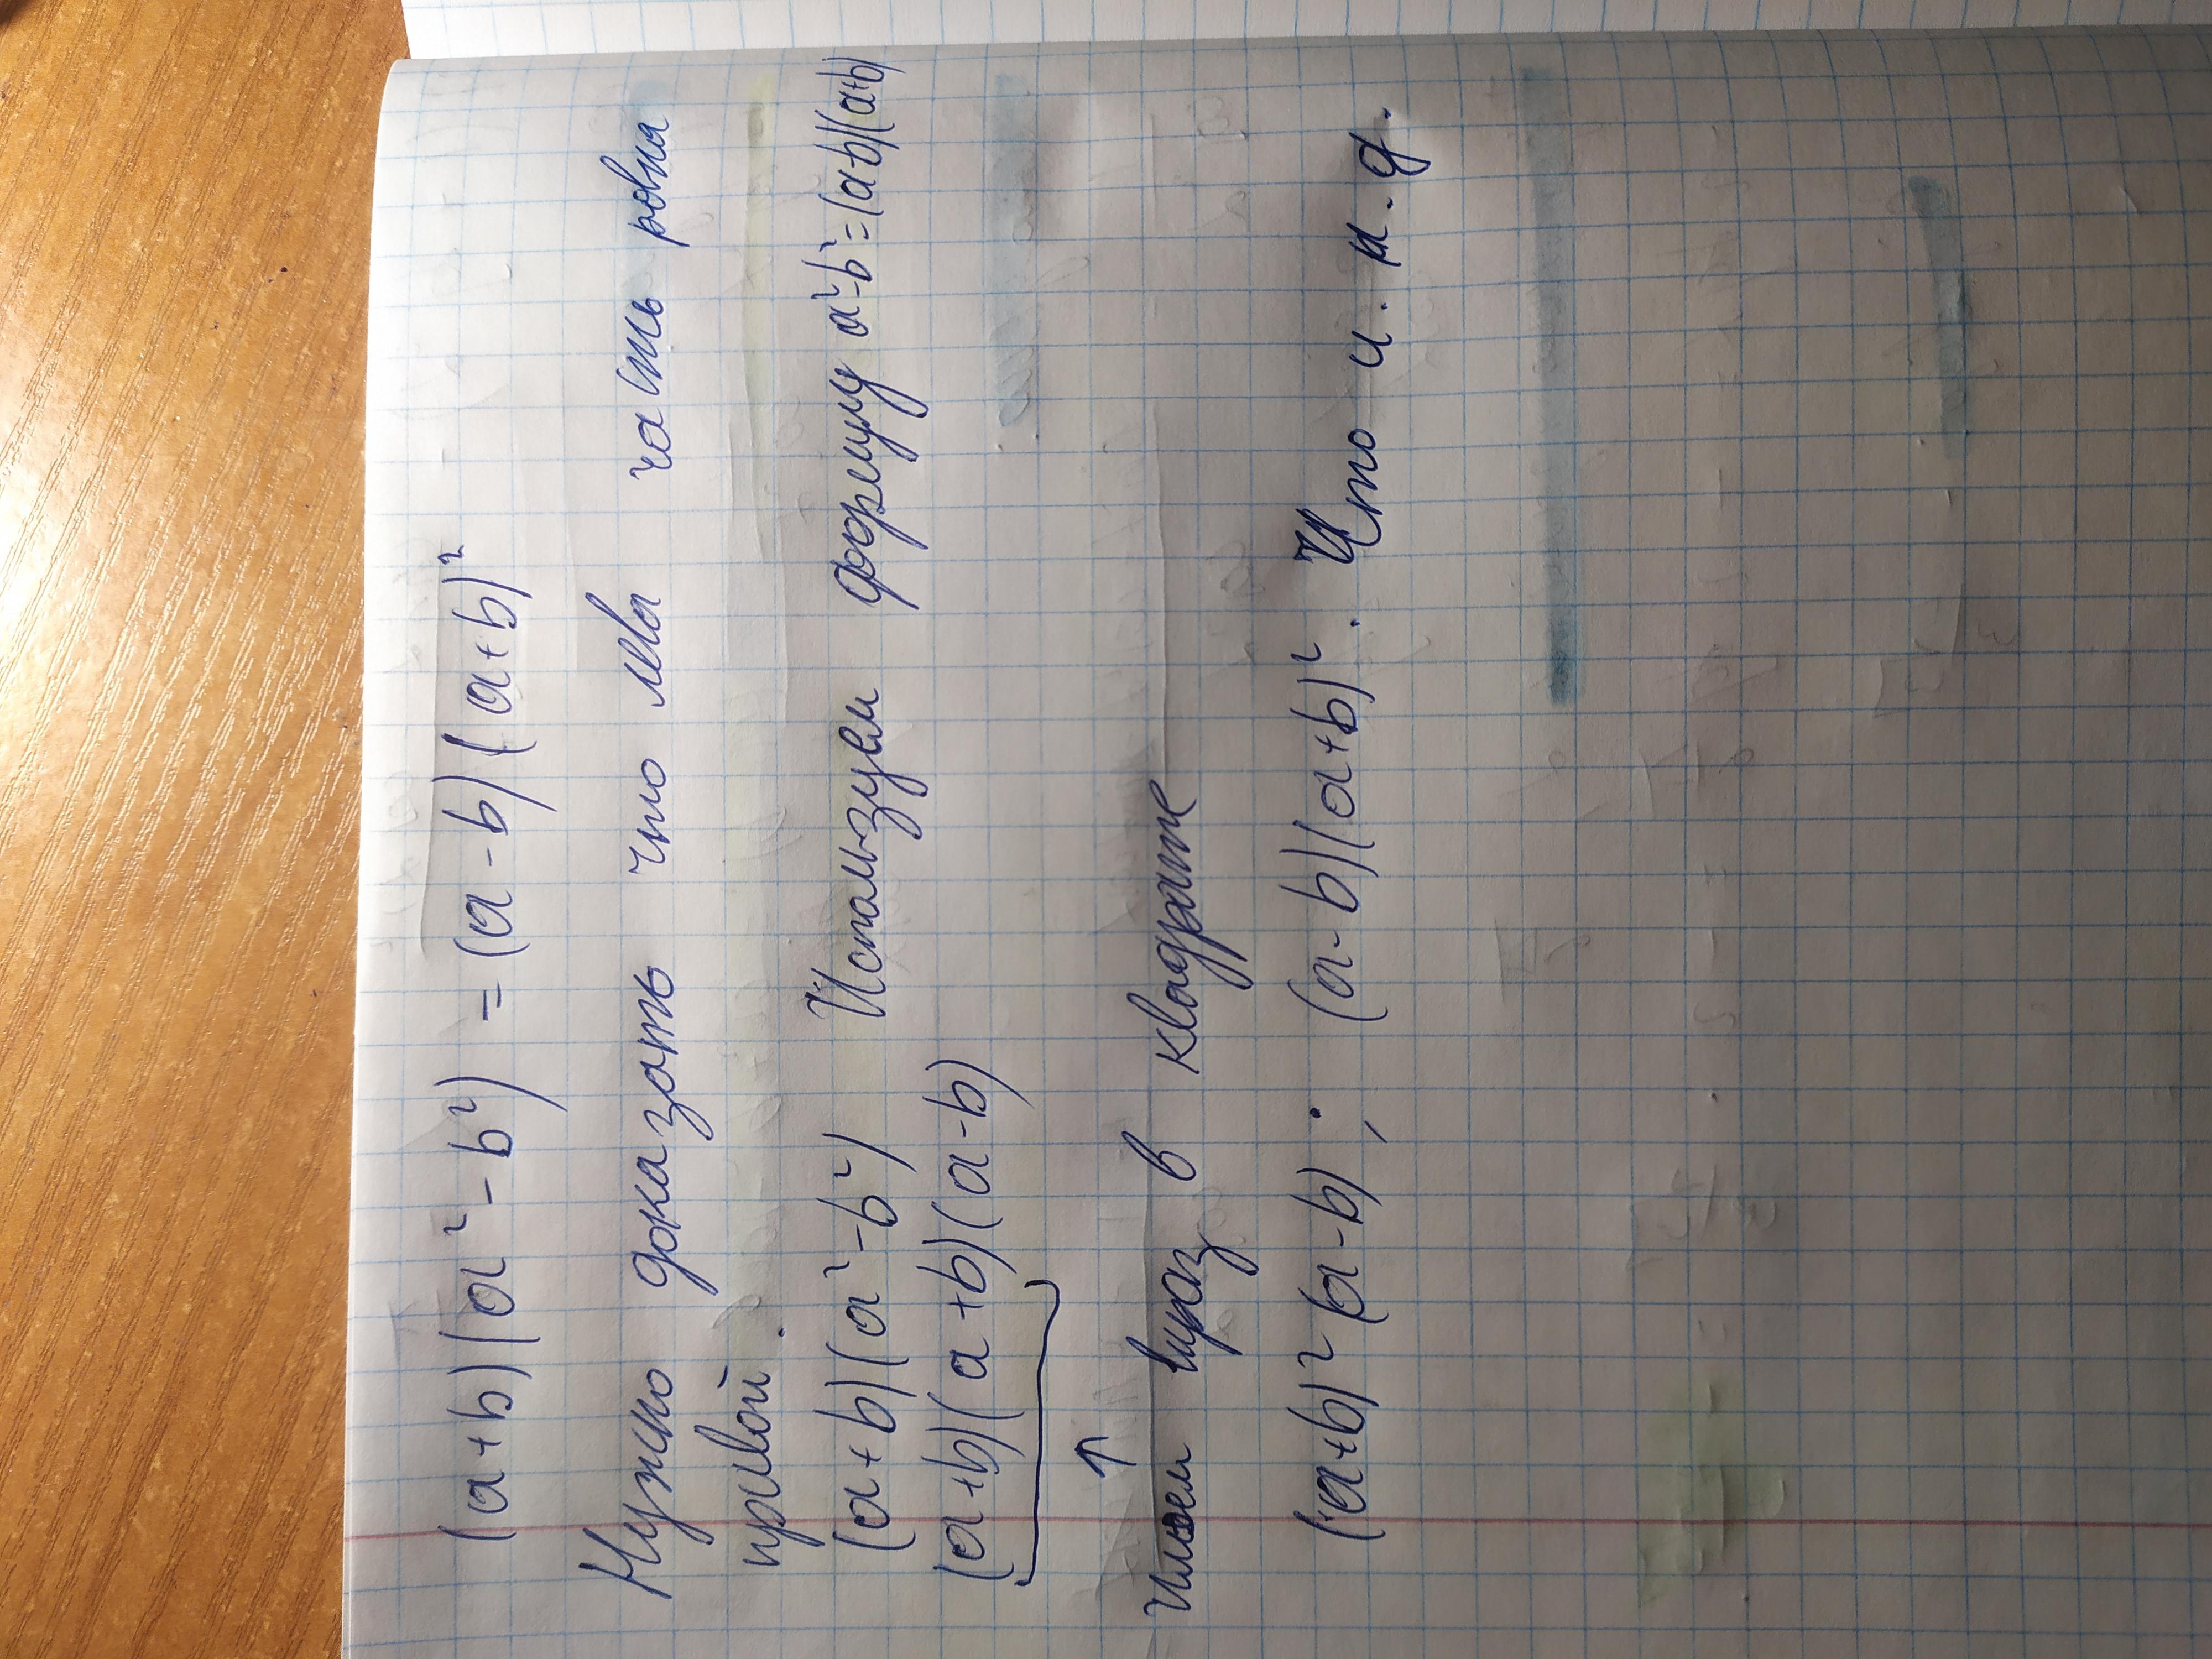 (a+b)(a² - b²) = (a-b)(a+b)²
Нужно доказать что лва часть ровна
правой.
(a+b)(a²-b²) Используем формулу a²-b²=(a-b)(a+b)
(a+b)(a+b)(a-b)
↑
Имеем выраз в квадрате
(a+b)² (a-b); (a-b)(a+b)². Что и. н. д.